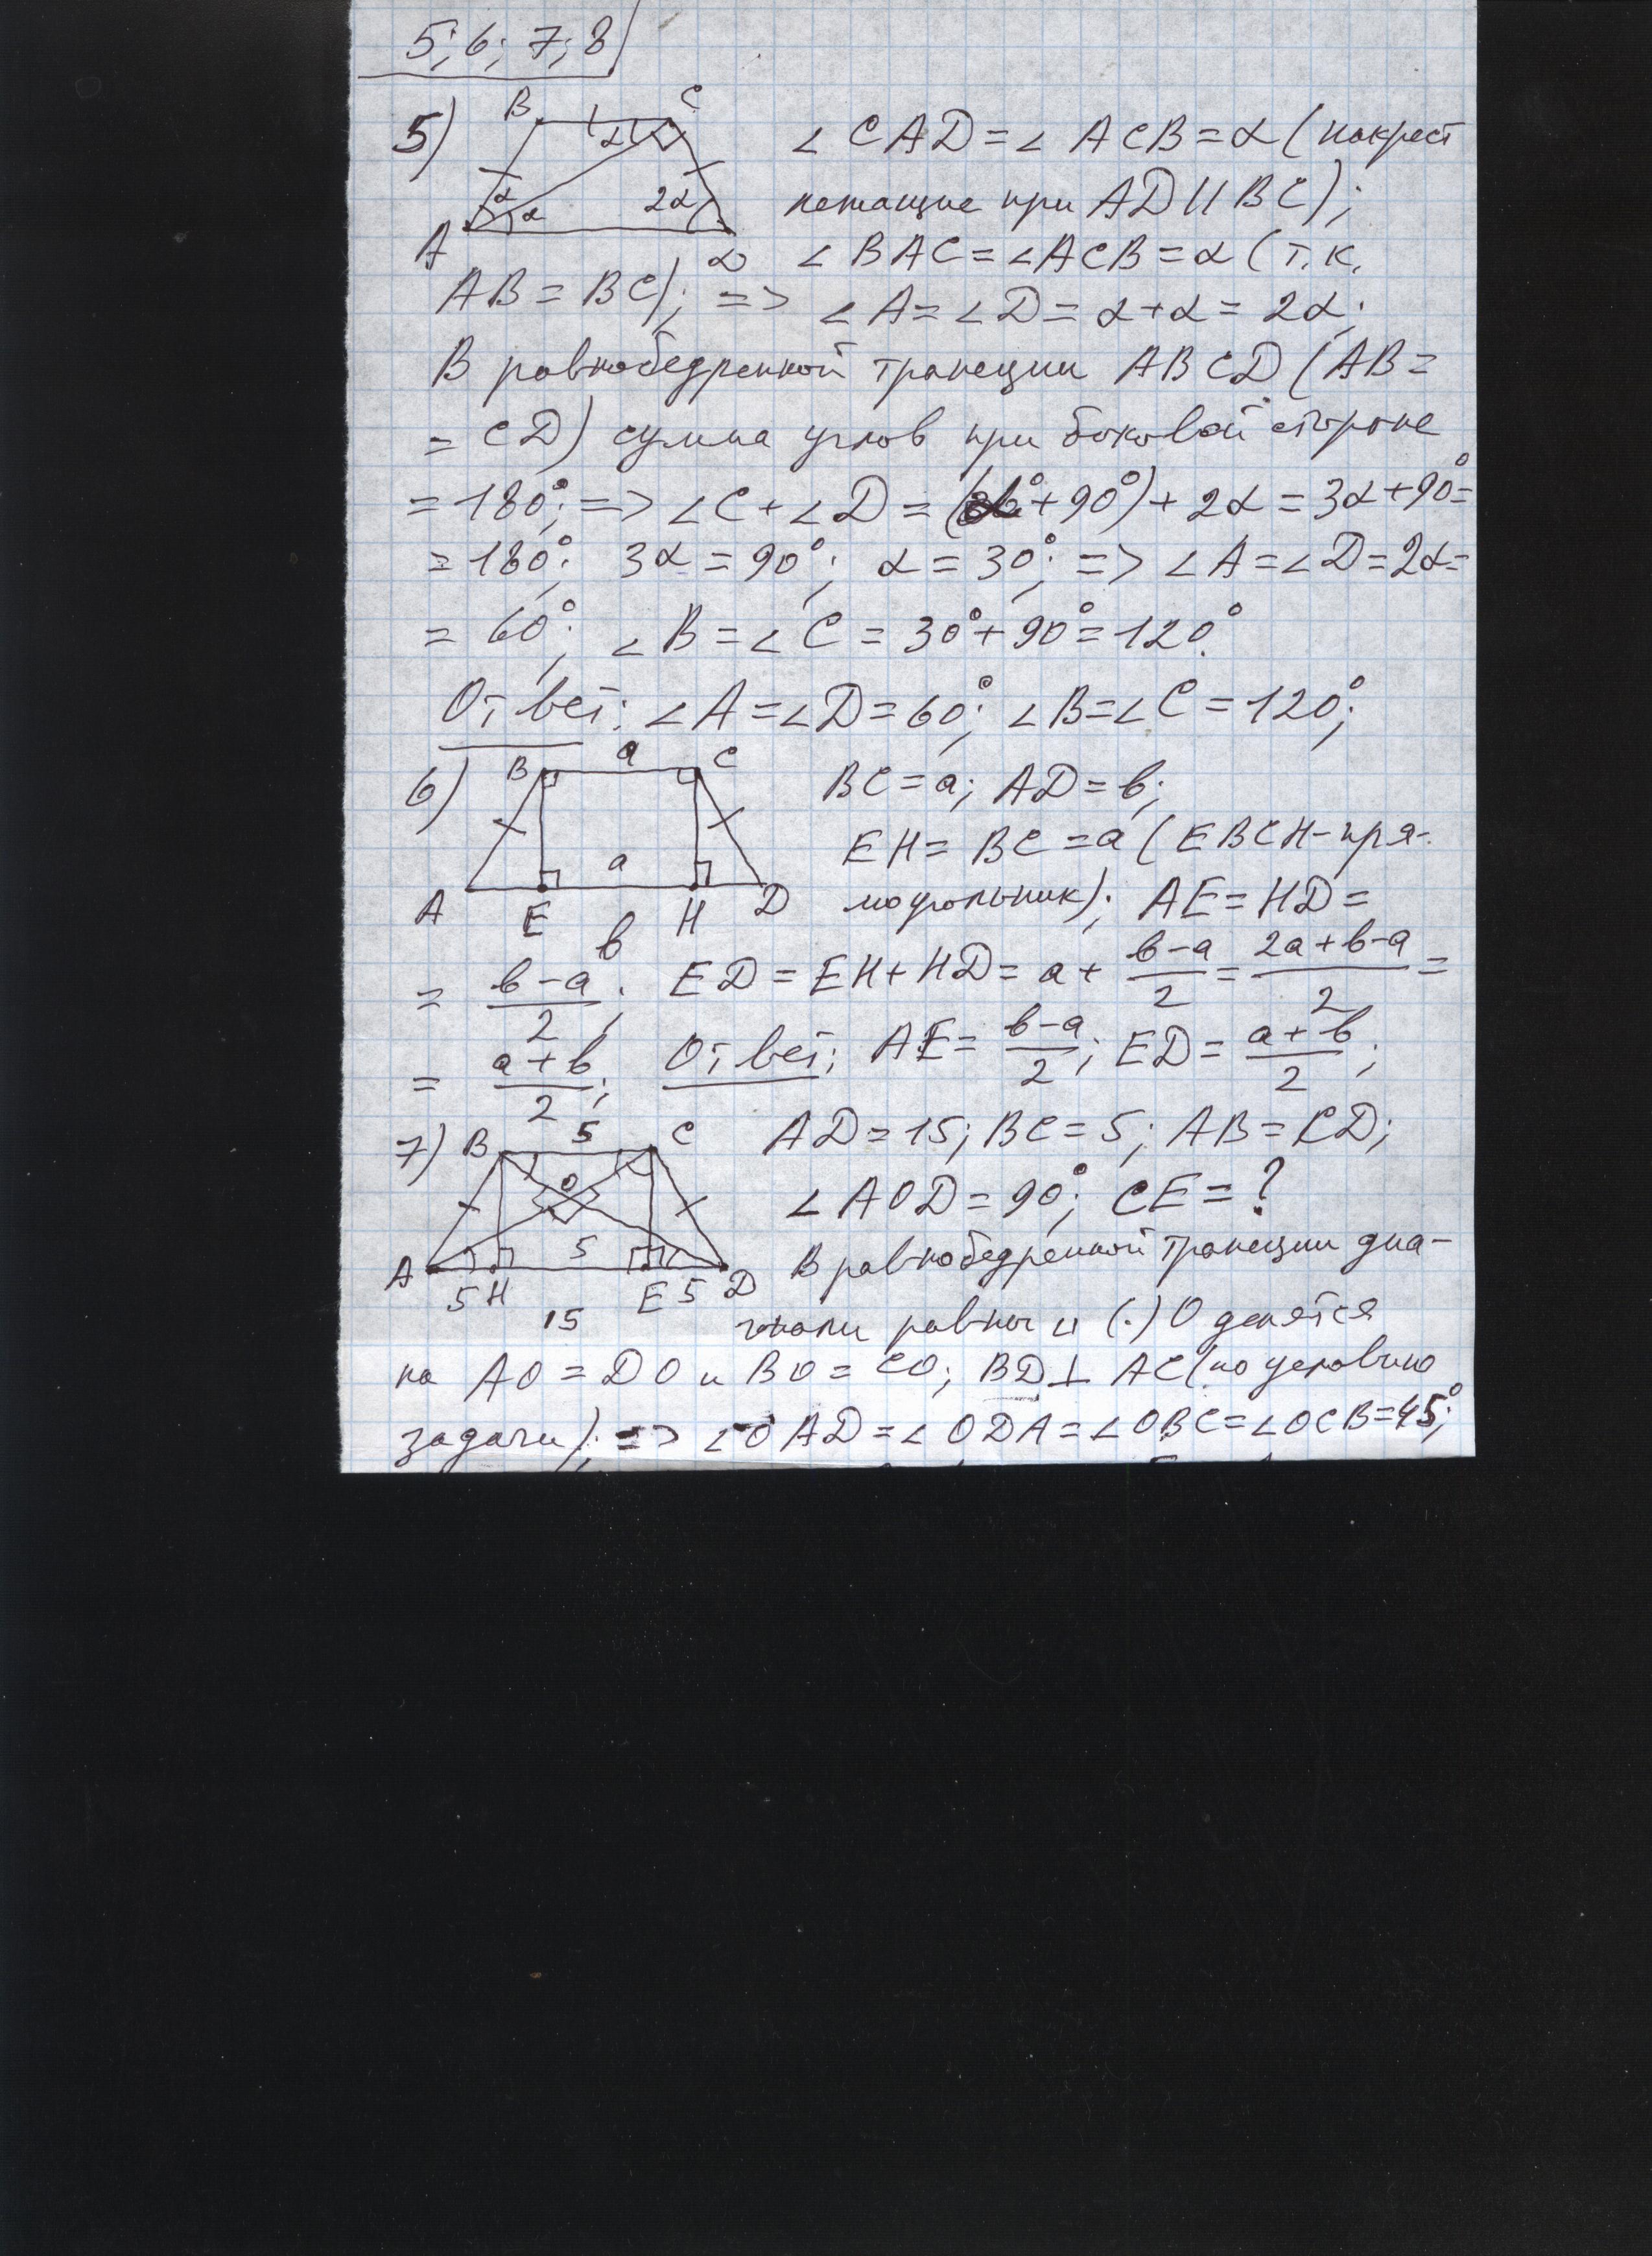 5; 6; 7; 8
5) B C
α
α α 2α
A D
∠CAD = ∠ACB = α (накрест
лежащие при AD || BC);
∠BAC = ∠ACB = α (т.к.
AB = BC); => ∠A = ∠D = α+α = 2α;
В равнобедренной трапеции ABCD (AB =
= CD) сумма углов при боковой стороне
= 180°; => ∠C + ∠D = ( + 90°) + 2α = 3α + 90° =
= 180°; 3α = 90°; α = 30°; => ∠A = ∠D = 2α =
= 60°; ∠B = ∠C = 30° + 90° = 120°.
Ответ: ∠A = ∠D = 60°; ∠B = ∠C = 120°;
6) B a C
a
A E H D
в
BC = a; AD = в;
EH = BC = a (EBCH - пря-
моугольник); AE = HD =
= (в-a)/2; ED = EH + HD = a + (в-a)/2 = (2a+в-a)/2 =
= (a+в)/2; Ответ: AE = (в-a)/2; ED = (a+в)/2;
7) B 5 C
O
5
A 5 H E 5 D
15
AD = 15; BC = 5; AB = CD;
∠AOD = 90°; CE = ?
В равнобедренной трапеции диа-
гонали равны и (·) O делятся
на AO = DO и BO = CO; BD ⊥ AC (по условию
задачи); => ∠OAD = ∠ODA = ∠OBC = ∠OCB = 45°;